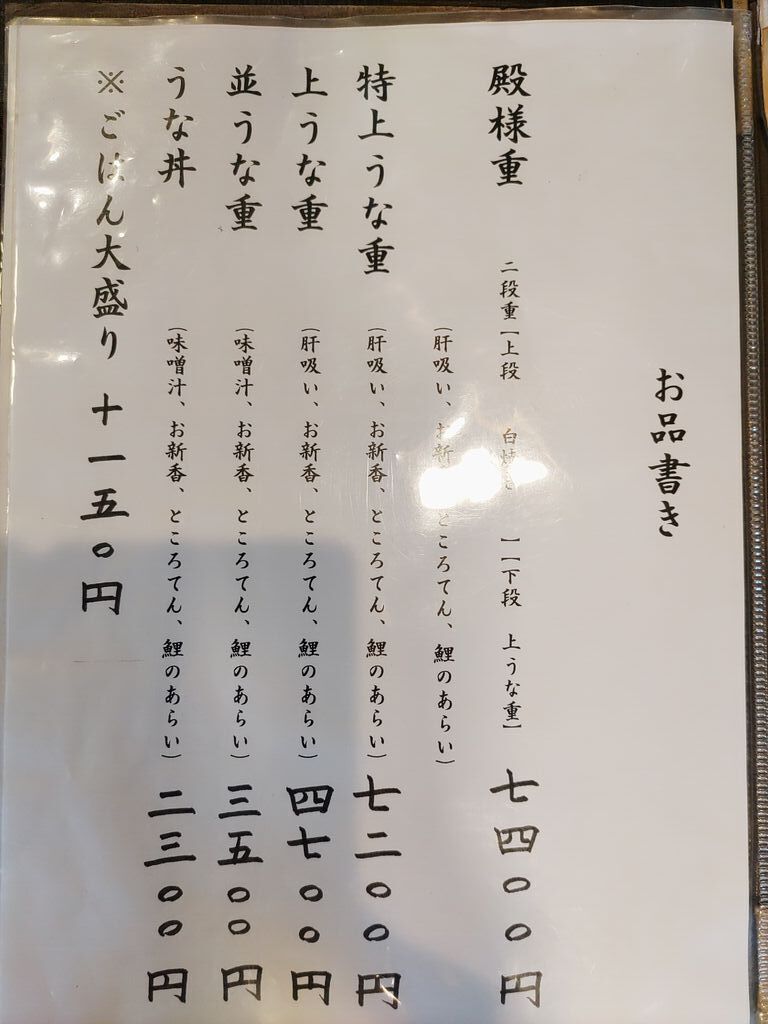 お品書き
殿様重 二段重【上段 白焼き 】【下段 上うな重】 七四〇〇円
(肝吸い、お新香、ところてん、鯉のあらい)
特上うな重 (肝吸い、お新香、ところてん、鯉のあらい) 七二〇〇円
上うな重 (肝吸い、お新香、ところてん、鯉のあらい) 四七〇〇円
並うな重 (味噌汁、お新香、ところてん、鯉のあらい) 三五〇〇円
うな丼 (味噌汁、お新香、ところてん、鯉のあらい) 二三〇〇円
※ごはん大盛り 十一五〇円